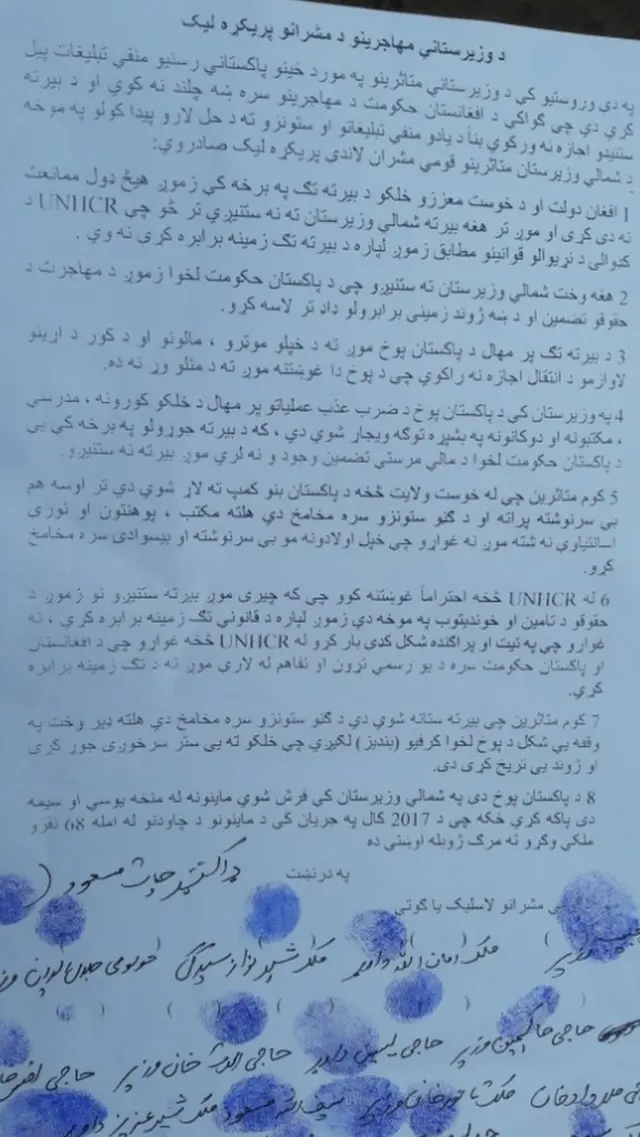 د وزيرستاني مهاجرينو د مشرانو پريکړه ليک
په دې وروستيو کې د وزيرستاني متاثرينو په مورد ځينو پاکستاني رسنيو منفي تبليغات پيل
کړي دي چې ګواکې د افغانستان حکومت د مهاجرينو سره ښه چلند نه کوي او د بيرته
ستنيدو اجازه نه ورکوي بناً د يادو منفي تبليغاتو او ستونزو ته د حل لارو پيدا کولو په موخه
د شمالي وزيرستان متاثرينو قومي مشران لاندې پريکړه ليک صادروي:
1 افغان دولت او د خوست معززو خلکو د بيرته تګ په برخه کې زموږ هيڅ ډول ممانعت
نه دی کړی او موږ تر هغه بيرته شمالي وزيرستان ته نه ستنيږي تر څو چې UNHCR د
کډوالۍ د نړيوالو قوانينو مطابق زموږ لپاره د بيرته تګ زمينه برابره کړې نه وي .
2 هغه وخت شمالي وزيرستان ته ستنيږو چې د پاکستان حکومت لخوا زموږ د مهاجرت د
حقوقو تضمين او د ښه ژوند زمينې برابرولو ډاډ تر لاسه کړو.
3 د بيرته تګ پر مهال د پاکستان پوځ موږ ته د خپلو موټرو ، مالونو او د کور د اړينو
لوازمو د انتقال اجازه نه راکوي چې د پوځ دا غوښتنه موږ ته د منلو وړ نه ده.
4 په وزيرستان کې د پاکستان پوځ د ضرب عذب عملياتو پر مهال د خلکو کورونه ، مدرسې
، مکتبونه او دوکانونه په بشپړه توګه ويجاړ شوي دي ، که د بيرته جوړولو په برخه کې يې
د پاکستان حکومت لخوا د مالي مرستې تضمين وجود و نه لري موږ بيرته نه ستنيږو.
5 کوم متاثرين چې له خوست ولايت څخه د پاکستان بنو کمپ ته لاړ شوي دي تر اوسه هم
بې سرنوشته پراته او د ګڼو ستونزو سره مخامخ دي هلته مکتب ، پوهنتون او نورې
اسانتياوې نه شته موږ نه غواړو چې خپل اولادونه مو بې سرنوشته او بيسوادۍ سره مخامخ
کړو.
6 له UNHCR څخه احتراماً غوښتنه کوو چې که چيرې موږ بيرته ستنيږو نو زموږ د
حقوقو د تامين او خونديتوب په موخه دې زموږ لپاره د قانوني تګ زمينه برابره کړي ، نه
غواړو چې په تيت او پراګنده شکل کډې بار کړو له UNHCR څخه غواړو چې د افغانستان
او پاکستان حکومت سره د يو رسمي تړون او تفاهم له لارې موږ ته د تګ زمينه برابره
کړي.
7 کوم متاثرين چې بيرته ستانه شوي دي د ګڼو ستونزو سره مخامخ دي هلته ډير وخت په
وقفه يي شکل د پوځ لخوا کرفيو (بنديز) لګيږي چې خلکو ته يې ستر سرخوږی جوړ کړی
او ژوند يې تريخ کړی دی.
8 د پاکستان پوځ دې په شمالي وزيرستان کې فرش شوي ماينونه له منځه يوسي او سيمه
دې پاکه کړي ځکه چې د 2017 کال په جريان کې د ماينونو د چاودنو له امله 68 نفرو
ملکي وګړو ته مرګ ژوبله اوښتې ده
په درنښت
مشرانو لاسليک يا ګوتې
ملک امان الله داوړ ملک شير نواز
حاجی حاکمین وزیر حاجی
حاجی خان وزیر حاجی
مسعود ملک شیر عزیز داوړ